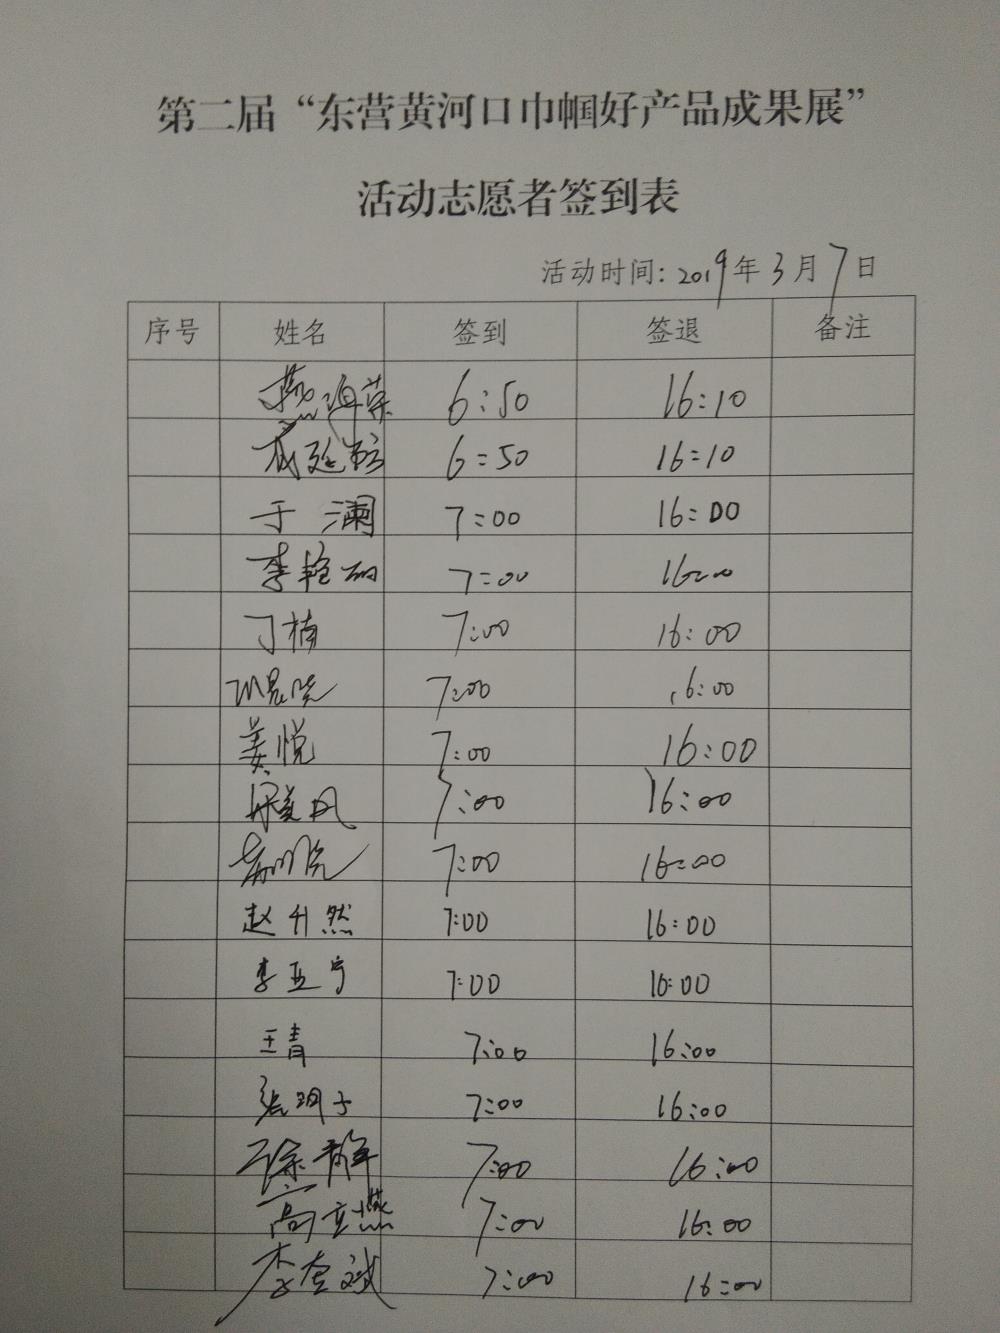 第二届“东营黄河口巾帼好产品成果展”
活动志愿者签到表
活动时间: 2019年3月7日
序号 姓名 签到 签退 备注
6:50 16:10
6:50 16:10
于澜 7:00 16:00
李艳丽 7:00 16:00
丁楠 7:00 16:00
7:00 16:00
姜悦 7:00 16:00
7:00 16:00
7:00 16:00
赵升然 7:00 16:00
李亚宁 7:00 16:00
王青 7:00 16:00
张明子 7:00 16:00
徐静 7:00 16:00
高立燕 7:00 16:00
李奎斌 7:00 16:00